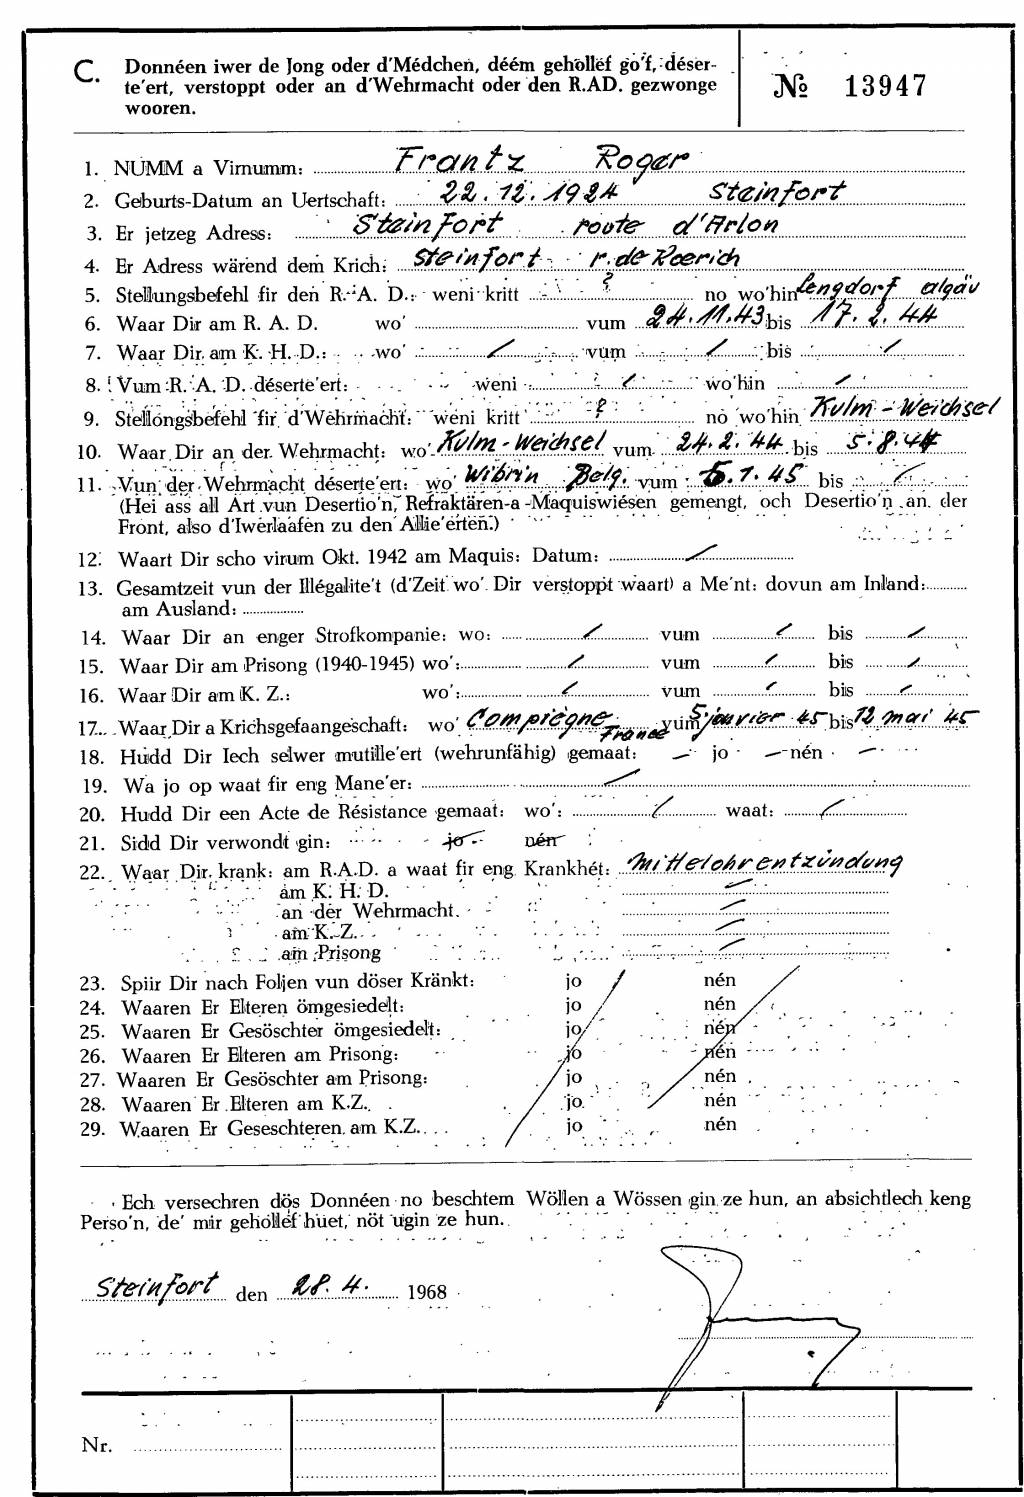 C. Donnéen iwer de Jong oder d'Médchen, déém gehollëf go'f, déser-
te'ert, verstoppt oder an d'Wehrmacht oder den R.AD. gezwonge
wooren.
№ 13947
1. NUMM a Virnumm: Frantz Roger
2. Geburts-Datum an Uertschaft: 22.12.1924 Steinfort
3. Er jetzeg Adress: Steinfort route d'Arlon
4. Er Adress wärend dem Krich: Steinfort r. de Koerich
5. Stellungsbefehl fir den R. A. D.: weni kritt ? no wo'hin Lengdorf algäu
6. Waar Dir am R. A. D. wo' vum 24.11.43 bis 17.2.44
7. Waar Dir am K. H. D.: wo' / vum / bis /
8. Vum R. A. D. déserte'ert: weni / wo'hin /
9. Stellongsbefehl fir d'Wehrmacht: weni kritt ? no wo'hin Kulm-Weichsel
10. Waar Dir an der Wehrmacht: wo' Kulm-Weichsel vum 24.2.44 bis 5.8.44
11. Vun der Wehrmacht déserte'ert: wo' Wibrin Belg. vum 5.1.45 bis /
(Hei ass all Art vun Desertio'n, Refraktären-a-Maquiswiésen gemengt, och Desertio'n an der
Front, also d'Iwerlaafen zu den Allie'erten.)
12. Waart Dir scho virum Okt. 1942 am Maquis: Datum: /
13. Gesamtzeit vun der Illégalite't (d'Zeit wo' Dir verstoppt waart) a Me'nt: dovun am Inland:
am Ausland:
14. Waar Dir an enger Strofkompanie: wo: / vum / bis /
15. Waar Dir am Prisong (1940-1945) wo': / vum / bis /
16. Waar Dir am K. Z.: wo': / vum / bis /
17. Waar Dir a Krichsgefaangeschaft: wo' Compiègne France vum 5 janvier 45 bis 12 mai 45
18. Hudd Dir Iech selwer mutille'ert (wehrunfähig) gemaat: — jo — nén —
19. Wa jo op waat fir eng Mane'er: /
20. Hudd Dir een Acte de Résistance gemaat: wo': / waat: /
21. Sidd Dir verwondt gin: jo nén
22. Waar Dir krank: am R.A.D. a waat fir eng Krankhét: Mittelohrentzündung
am K. H. D. /
an der Wehrmacht. /
am K. Z. /
am Prisong /
23. Spiir Dir nach Foljen vun döser Kränkt: jo nén
24. Waaren Er Elteren ömgesiedelt: jo nén
25. Waaren Er Gesöschter ömgesiedelt: jo nén
26. Waaren Er Elteren am Prisong: jo nén
27. Waaren Er Gesöschter am Prisong: jo nén
28. Waaren Er Elteren am K.Z. jo nén
29. Waaren Er Geseschteren am K.Z. jo nén
Ech versechren dös Donnéen no beschtem Wöllen a Wössen gin ze hun, an absichtlech keng
Perso'n, de' mir gehollëf huet, nöt ugin ze hun.
Steinfort den 28.4. 1968
Nr.